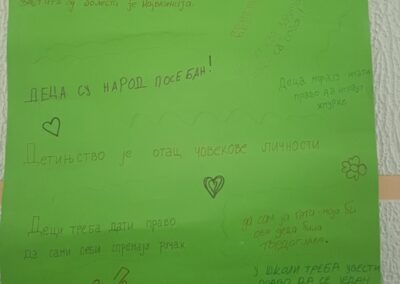 ЗАШТИТА ОД БОЛЕСТИ ЈЕ НАЈВАЖНИЈА.
ДЕЦА СУ НАРОД ПОСЕБАН!
ДЕЦА МОРАЈУ ИМАТИ
ПРАВО ДА ИГРАЈУ
ЖМУРКЕ
ДЕТИЊСТВО ЈЕ ОТАЦ ЧОВЕКОВЕ ЛИЧНОСТИ
ДЕЦИ ТРЕБА ДАТИ ПРАВО
ДА САМИ СЕБИ СПРЕМАЈУ РУЧАК
ДА САМ ЈА ТАТА МОЈА БИ
СВА ДЕЦА БИЛА
У ШКОЛИ ТРЕБА УВЕСТИ
ПРАВО ДА СЕ ЈЕДАН